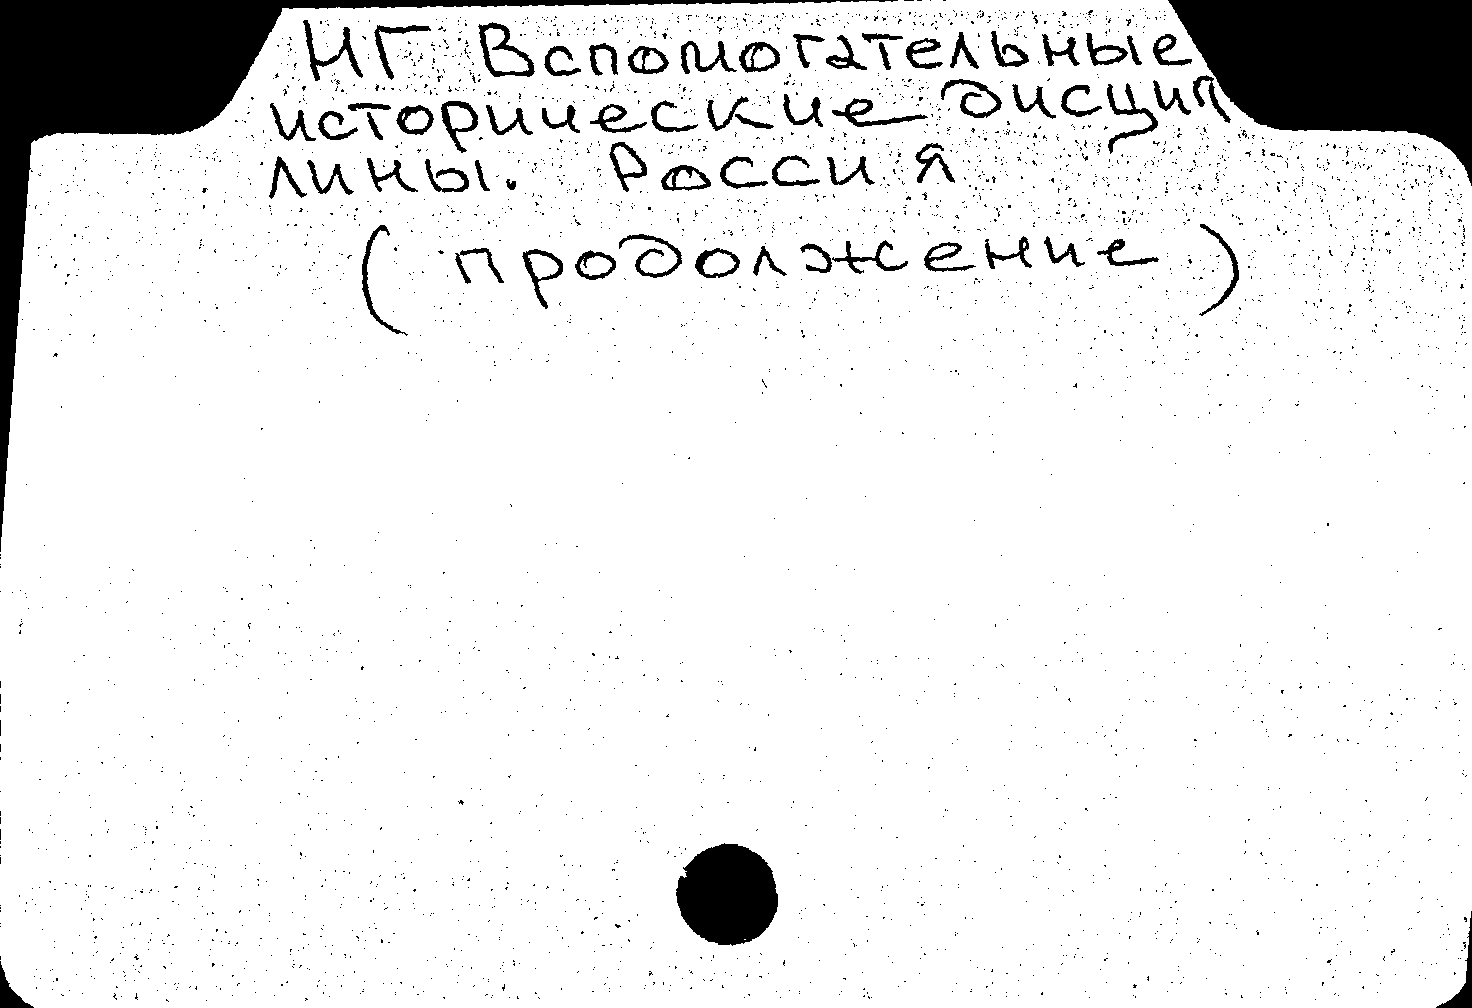 НГ Вспомогательные
исторические дисцип
лины. Россия
(продолжение)